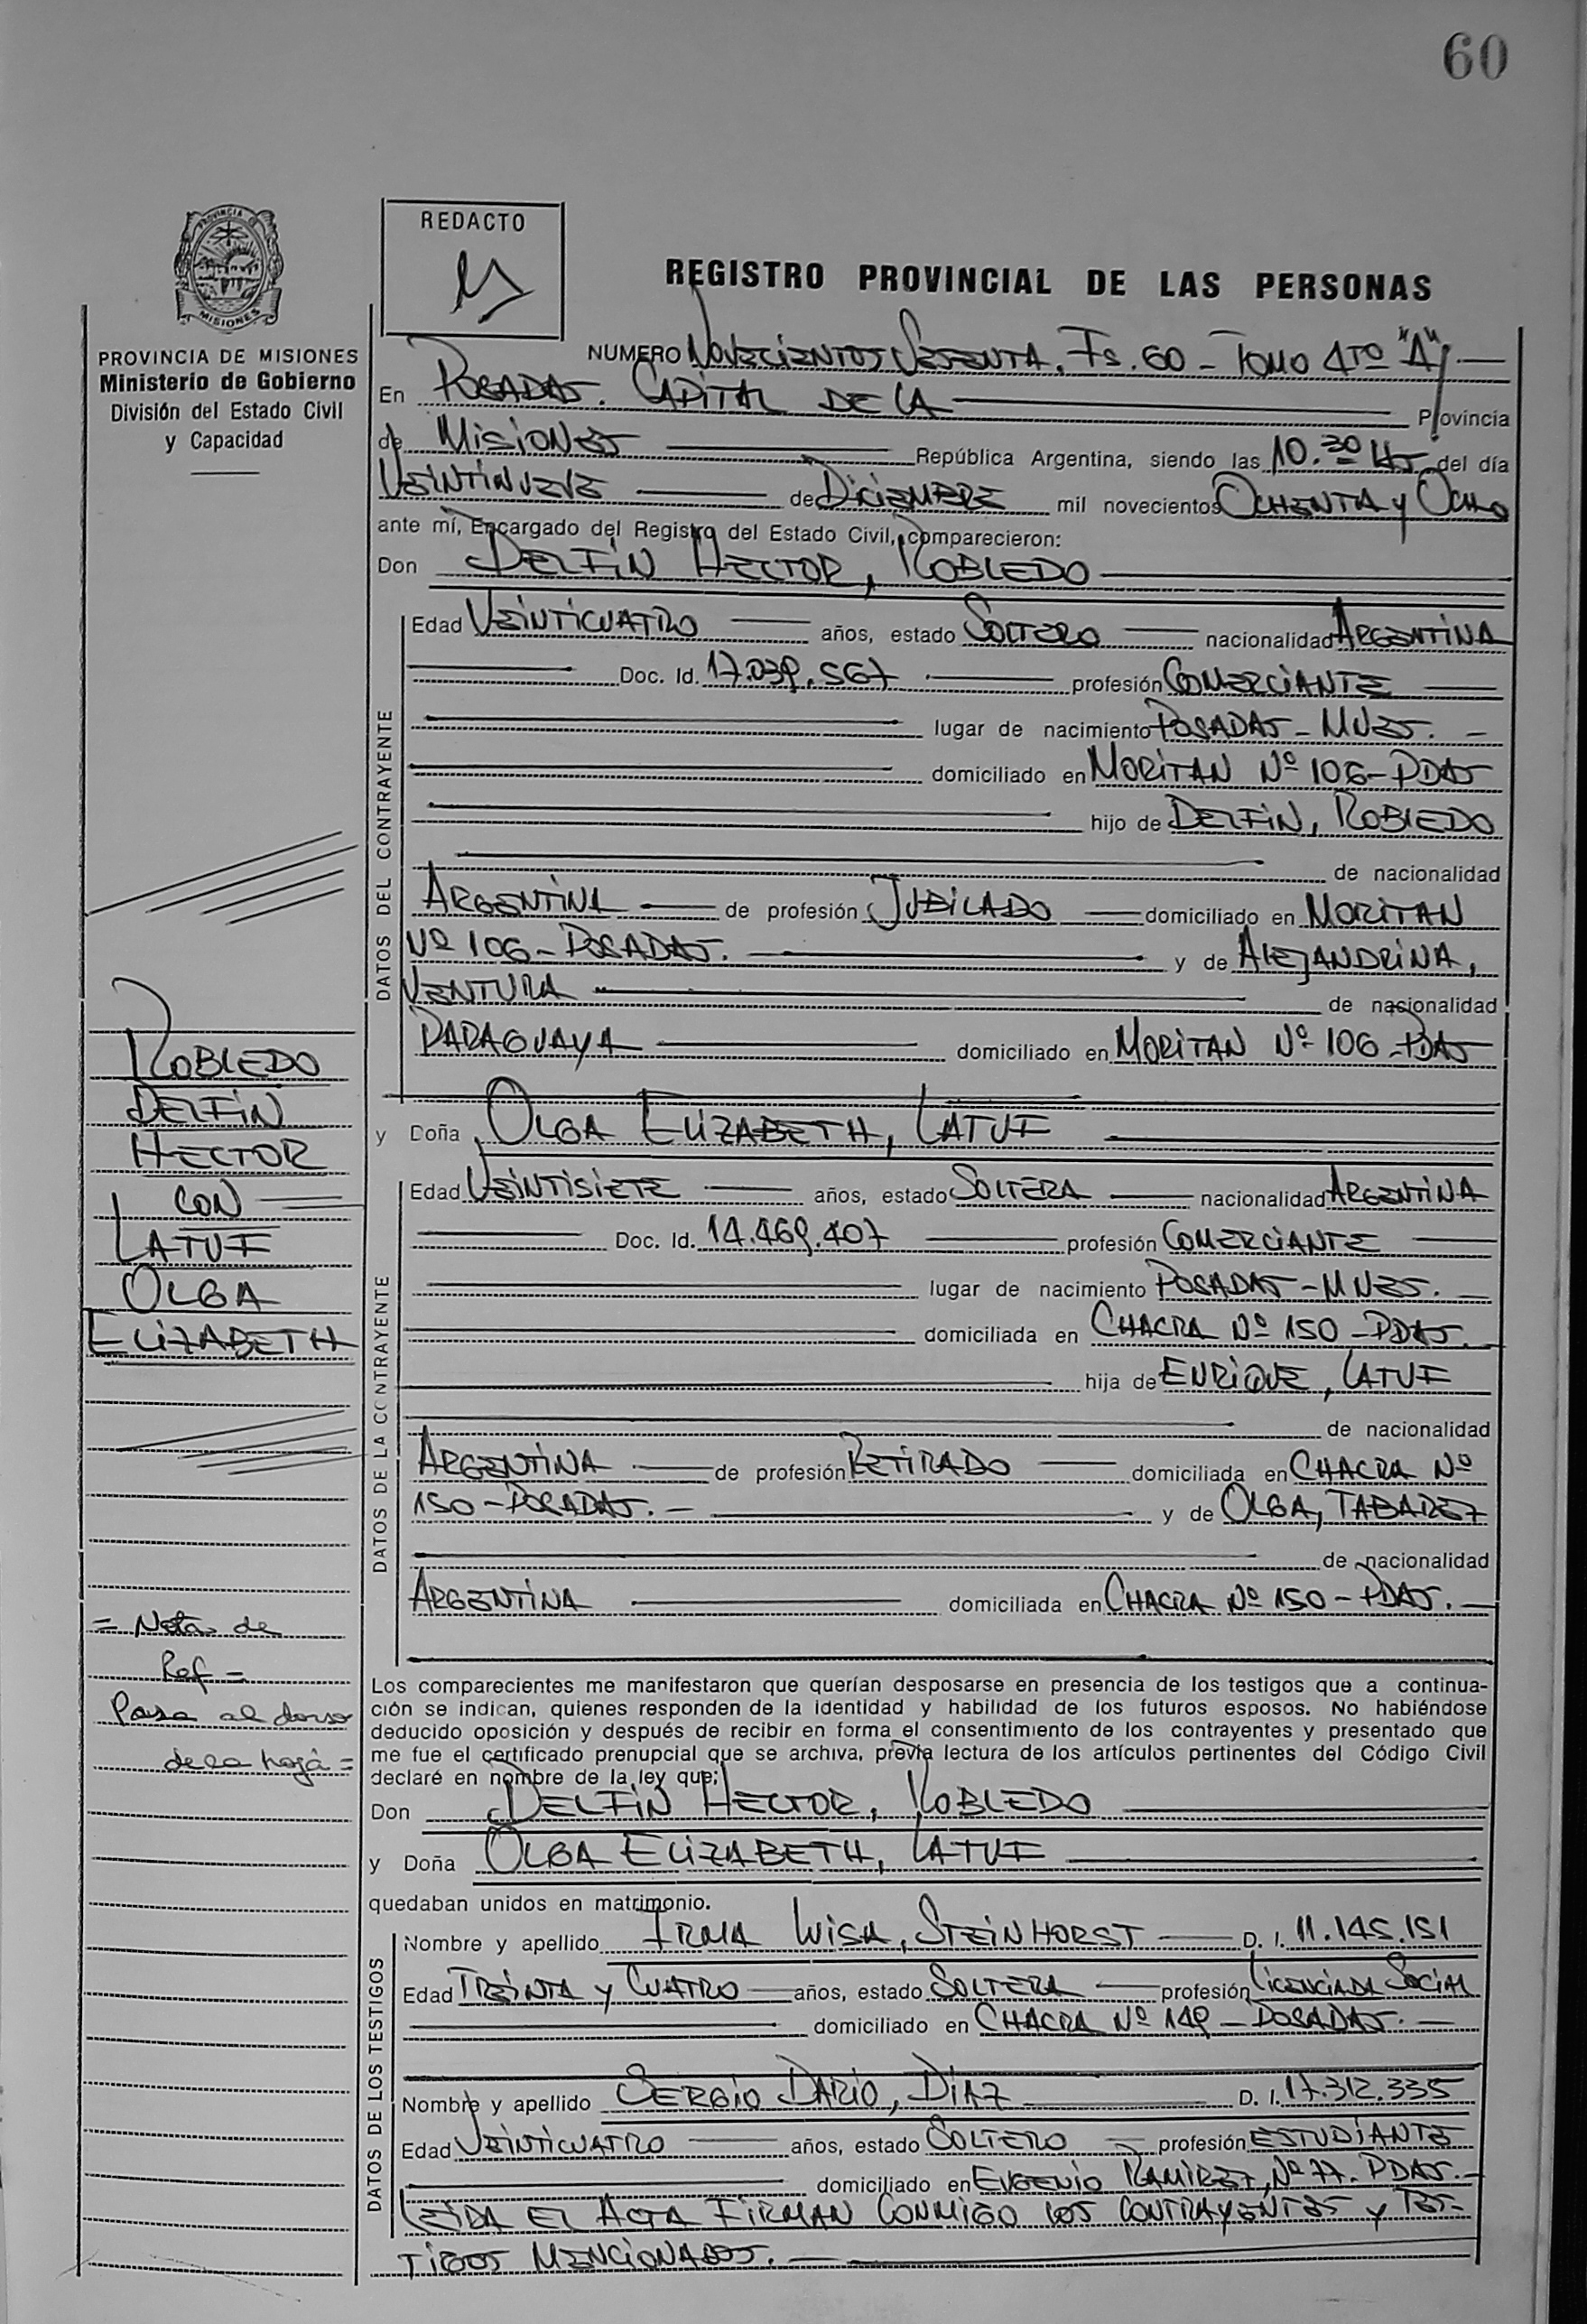 60
PROVINCIA DE
MISIONES
REDACTO
REGISTRO PROVINCIAL DE LAS PERSONAS
PROVINCIA DE MISIONES
Ministerio de Gobierno
División del Estado Civil
y Capacidad
NUMERO Novecientos Sesenta. Fs. 60 - Tomo 4to "A"
En Posadas. Capital de la Provincia
de Misiones República Argentina, siendo las 10.30 Hs del día
Veintinueve de Diciembre mil novecientos Ochenta y Ocho
ante mí, Encargado del Registro del Estado Civil, comparecieron:
Don Delfin Hector, Robledo
DATOS DEL CONTRAYENTE
Edad Veinticuatro años, estado Soltero nacionalidad Argentina
Doc. Id. 17.039.567 profesión Comerciante
lugar de nacimiento Posadas - Mnes.
domiciliado en Moritan Nº 106 - Pdas
hijo de Delfin, Robledo
de nacionalidad
Argentina de profesión Jubilado domiciliado en Moritan
Nº 106 - Posadas. y de Alejandrina,
Ventura de nacionalidad
Paraguaya domiciliado en Moritan Nº 106 - Pdas
y Doña Olga Elizabeth, Latuf
DATOS DE LA CONTRAYENTE
Edad Veintisiete años, estado Soltera nacionalidad Argentina
Doc. Id. 14.469.407 profesión Comerciante
lugar de nacimiento Posadas - Mnes.
domiciliada en Chacra Nº 150 - Pdas.
hija de Enrique, Latuf
de nacionalidad
Argentina de profesión Retirado domiciliada en Chacra Nº
150 - Posadas. - y de Olga, Tabarez
de nacionalidad
Argentina domiciliada en Chacra Nº 150 - Pdas.
Robledo
Delfin
Hector
con
Latuf
Olga
Elizabeth
= Notas de
Ref =
Pasa al dorso
de la hoja =
Los comparecientes me manifestaron que querían desposarse en presencia de los testigos que a continua-
ción se indican, quienes responden de la identidad y habilidad de los futuros esposos. No habiéndose
deducido oposición y después de recibir en forma el consentimiento de los contrayentes y presentado que
me fue el certificado prenupcial que se archiva, previa lectura de los artículos pertinentes del Código Civil
declaré en nombre de la ley que:
Don Delfin Hector, Robledo
y Doña Olga Elizabeth, Latuf
quedaban unidos en matrimonio.
DATOS DE LOS TESTIGOS
Nombre y apellido Irma Luisa, Steinhorst D. I. 11.145.151
Edad Treinta y Cuatro años, estado Soltera profesión Licenciada Social
domiciliado en Chacra Nº 149 - Posadas. -
Nombre y apellido Sergio Dario, Diaz D. I. 17.312.335
Edad Veinticuatro años, estado Soltero profesión Estudiante
domiciliado en Eugenio Ramirez, Nº 77. Pdas. -
Leida el Acta firman conmigo los contrayentes y tes-
tigos mencionados. -